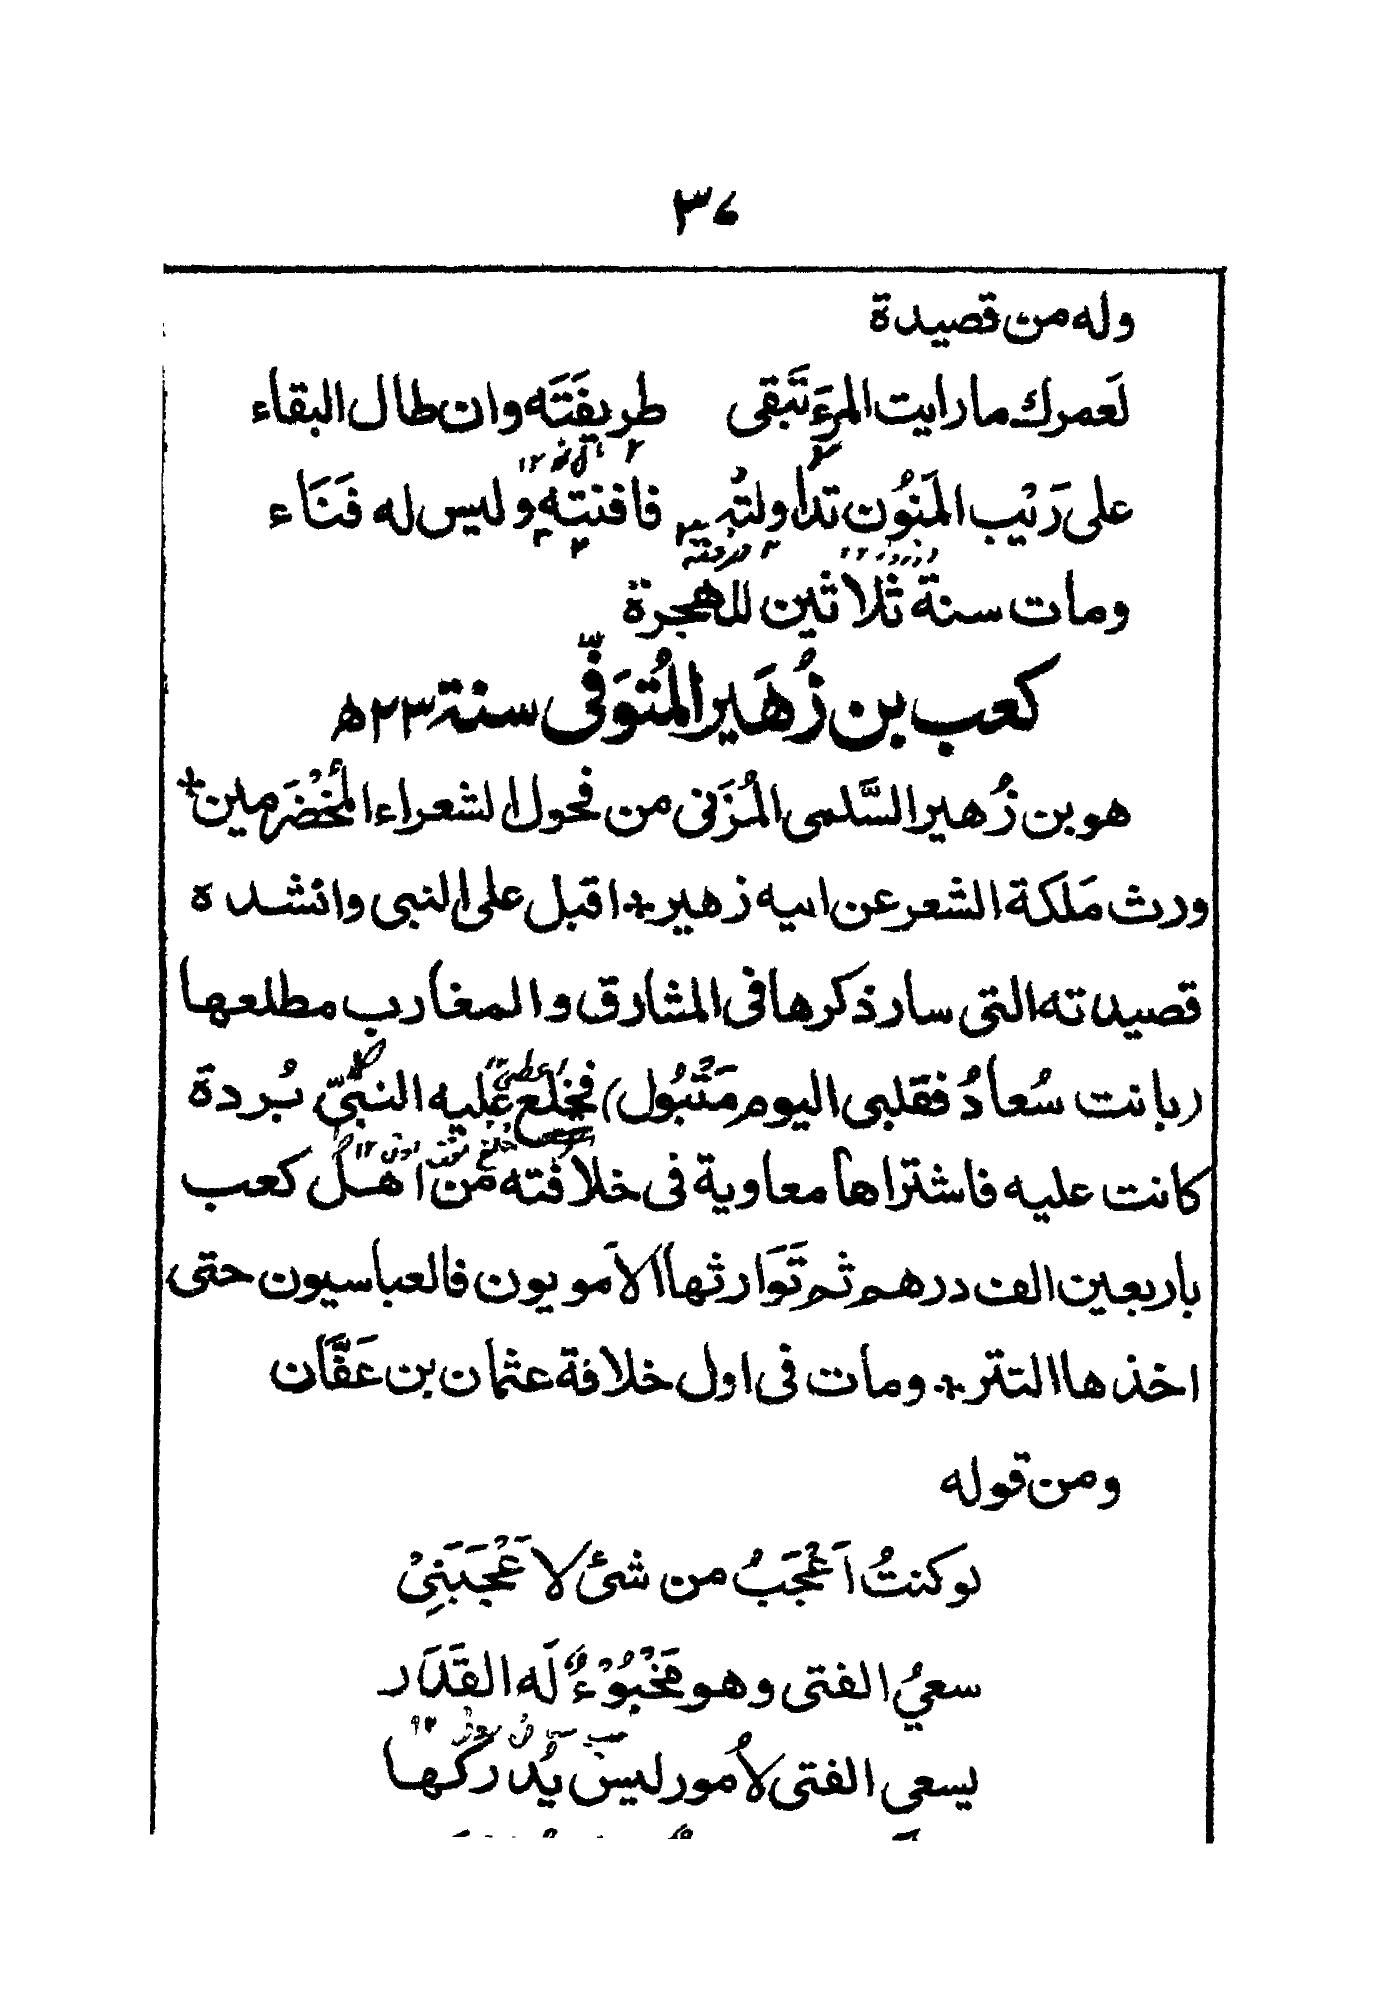 ٣٧
وله من قصيدة
لَعمرك ما رايت المرءَ تَبقى طريقَتَه وان طال البقاء
على رَيْب المَنُون تداولتُه فافنته وليس له فَنَاء
ومات سنة ثلاثين للهجرة
كعب بن زُهَير المُتوَفّى سنة ٢٣ﻫ
هو بن زُهير السَّلمى المُزَنى من فحول الشعراء المُخْضَرمين
ورث مَلَكة الشعر عن ابيه زهير اقبل على النبى وانشده
قصيدته التى سار ذكرها فى المشارق والمغارب مطلعها
(بانت سُعادُ فقلبى اليوم مَتْبُول) فخلع عليه النبىّ بُردة
كانت عليه فاشتراها معاوية فى خلافته من اهل كعب
باربعين الف درهم ثم تَوَارثها الاَمويون فالعباسيون حتى
اخذها التتر ومات فى اول خلافة عثمان بن عَفَّان
ومن قوله
لو كنتُ اَعْجَبُ من شئ لاَعْجَبَنِىْ
سعىُ الفتى وهو مَخْبُوْءٌ لَه القَدَر
يسعى الفتى لاُمور ليس يُدركها